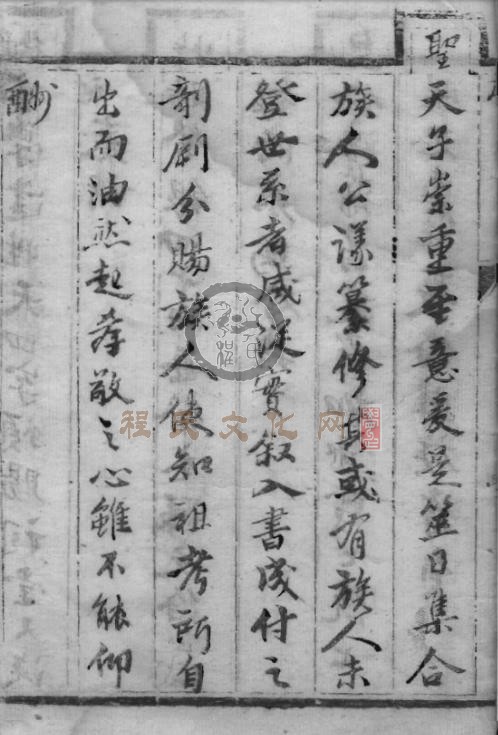 聖天子崇重至意爰是筮日集合
族人公議纂修其或有族人未
登世系者咸從實叙入書成付之
剞劂分賜族人使知祖考所自
出而油然起孝敬之心雖不能仰
酬
程氏文化网